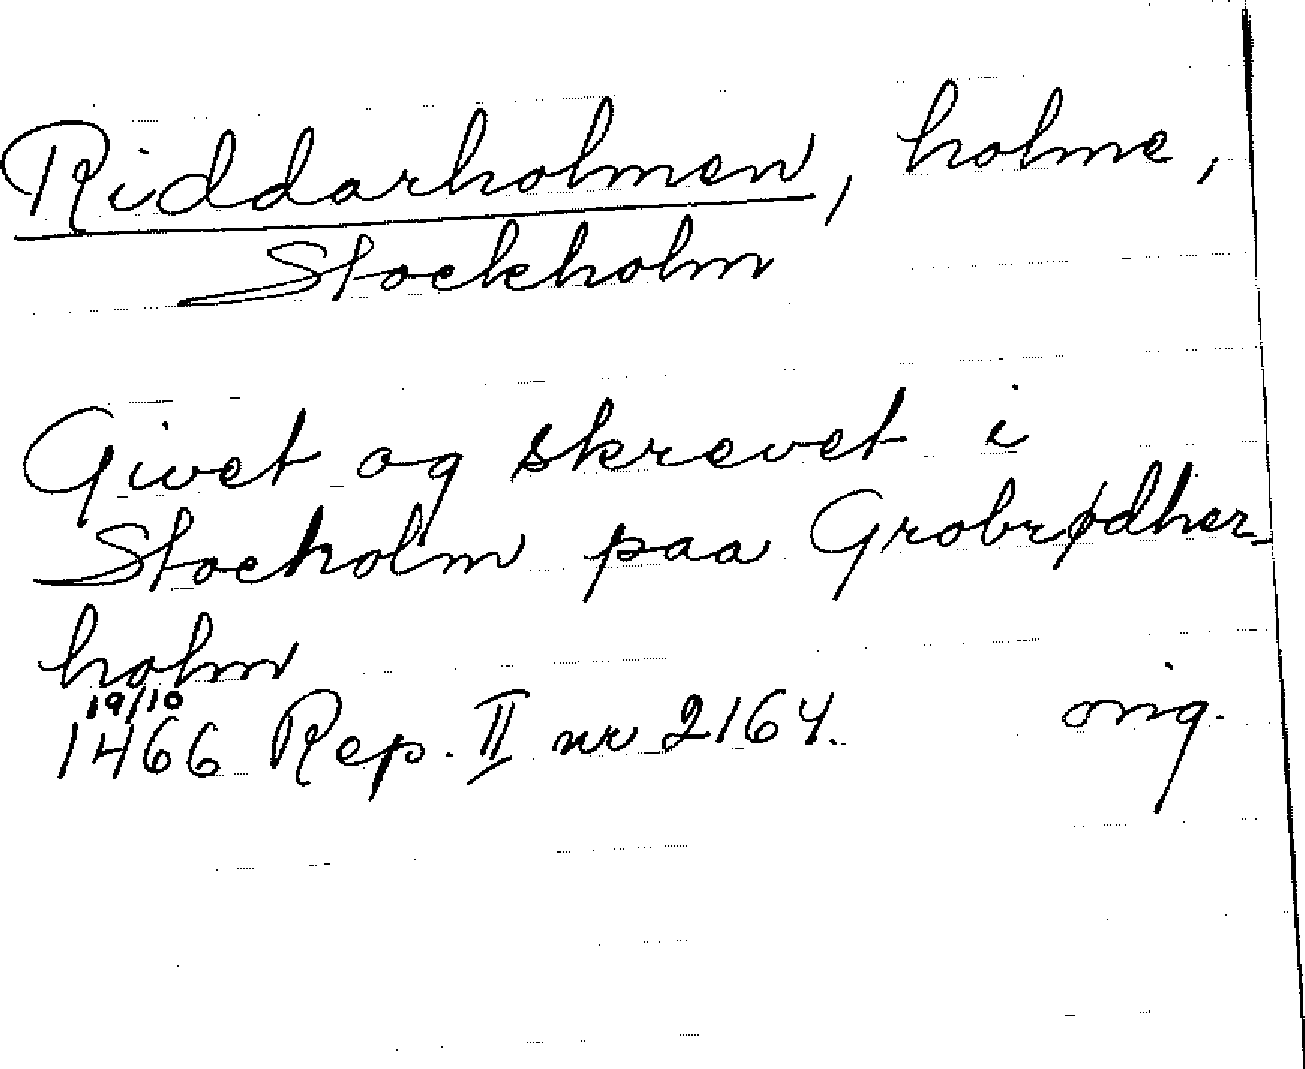 Riddarholmen, holme,
Stockholm
Givet og skrevet i
Stocholm paa Grobrødher-
holm
19/10
1466 Rep. II nr 2164. orig.